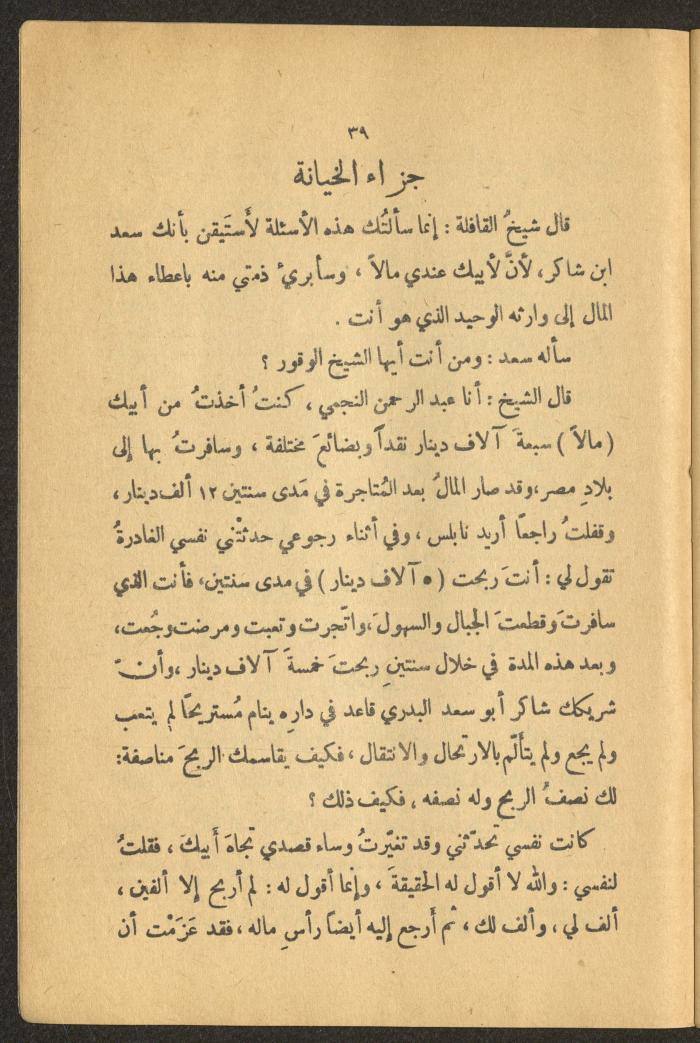 ٣٩
جزاء الخيانة
قال شيخُ القافلة : إنما سألتُك هذه الأسئلة لأَستَيقن بأنك سعد
ابن شاكر، لأنَّ لأبيك عندي مالاً ، وسأبريءُ ذمتي منه باعطاء هذا
المال إلى وارثه الوحيد الذي هو أنت .
سأله سعد : ومن أنت أيها الشيخ الوقور ؟
قال الشيخ : أنا عبد الرحمن النجمي ، كنتُ أخذتُ من أبيك
( مالاً ) سبعةَ آلاف دينار نقداً وبضائعَ مختلفة ، وسافرتُ بها إلى
بلادِ مصر، وقد صار المالُ بعد المُتاجرة في مَدى سنتين ١٢ ألف دينار ،
وقفلتُ راجعًا أريد نابلس ، وفي أثناء رجوعي حدثتْني نفسي الغادرةُ
تقول لي : أنتَ ربحت ( ٥ آلاف دينار ) في مدى سنتين، فأنت الذي
سافرتَ وقطعتَ الجبال والسهولَ ،واتّجرت وتعبت ومرضت وجُعت،
وبعد هذه المدة في خلال سنتينِ ربحتَ خمسةَ آلاف دينار ،وأنّ
شريكك شاكر أبو سعد البدري قاعد في دارِه ينام مُستريحًا لم يتعب
ولم يجع ولم يتألّم بالارتحال والانتقال ، فكيف يقاسمك الربحَ مناصفة:
لك نصفُ الربح وله نصفه ، فكيف ذلك ؟
كانت نفسي تحدّثني وقد تغيّرتُ وساء قصدي تجاهَ أَبيكَ ، فقلتُ
لنفسي : والله لا أقول له الحقيقةَ ، وإنما أقول له : لم أربح إلا ألفين ،
ألف لي ، وألف لك ، ثم أَرجع إليه أيضاً رأسِ ماله ، فقد عَزَمْت أن